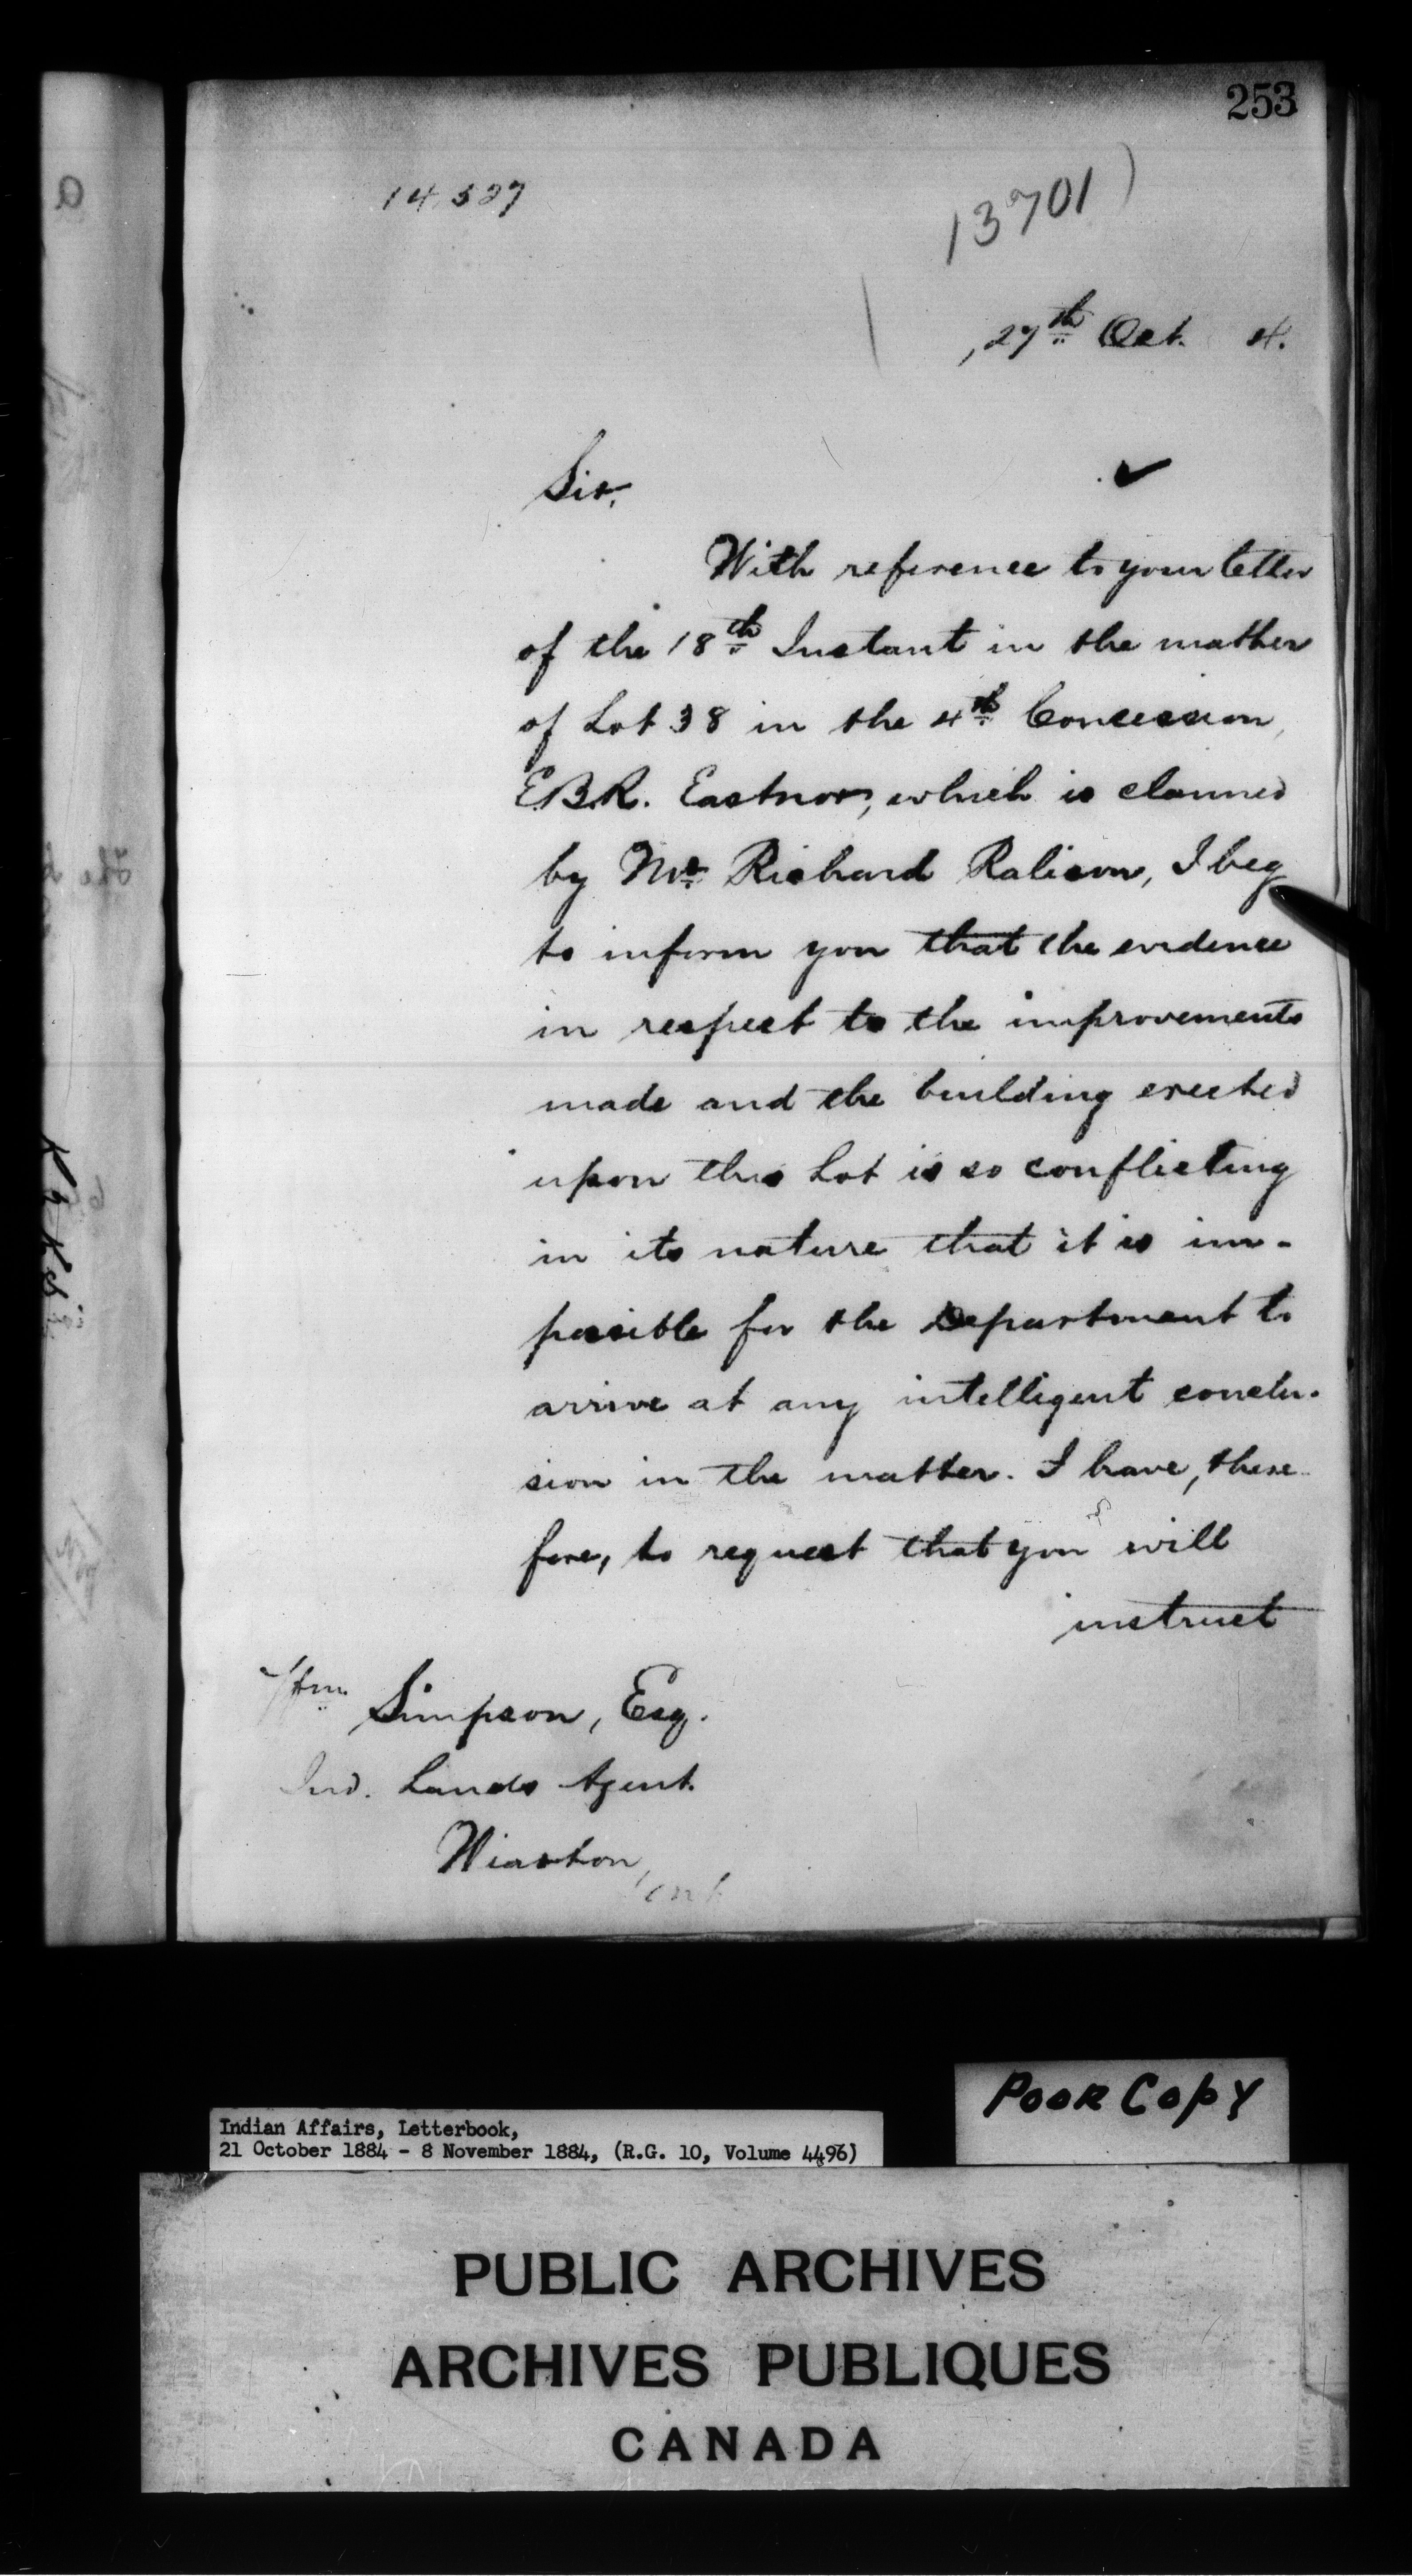 253
14,527
13701
27th Oct. 4.
Sir,
With reference to your letter
of the 18th Instant in the matter
of Lot 38 in the 4th Concession,
E.B.R. Eastnor, which is claimed
by Mr. Richard Ralison, I beg
to inform you that the evidence
in respect to the improvements
made and the building erected
upon this Lot is so conflicting
in its nature that it is im-
possible for the Department to
arrive at any intelligent conclu-
sion in the matter. I have, there-
fore, to request that you will
instruct
Wm. Simpson, Esq.
Ind. Lands Agent.
Wiarton,
Ont.
Poor Copy
Indian Affairs, Letterbook,
21 October 1884 - 8 November 1884, (R.G. 10, Volume 4496)
PUBLIC ARCHIVES
ARCHIVES PUBLIQUES
CANADA